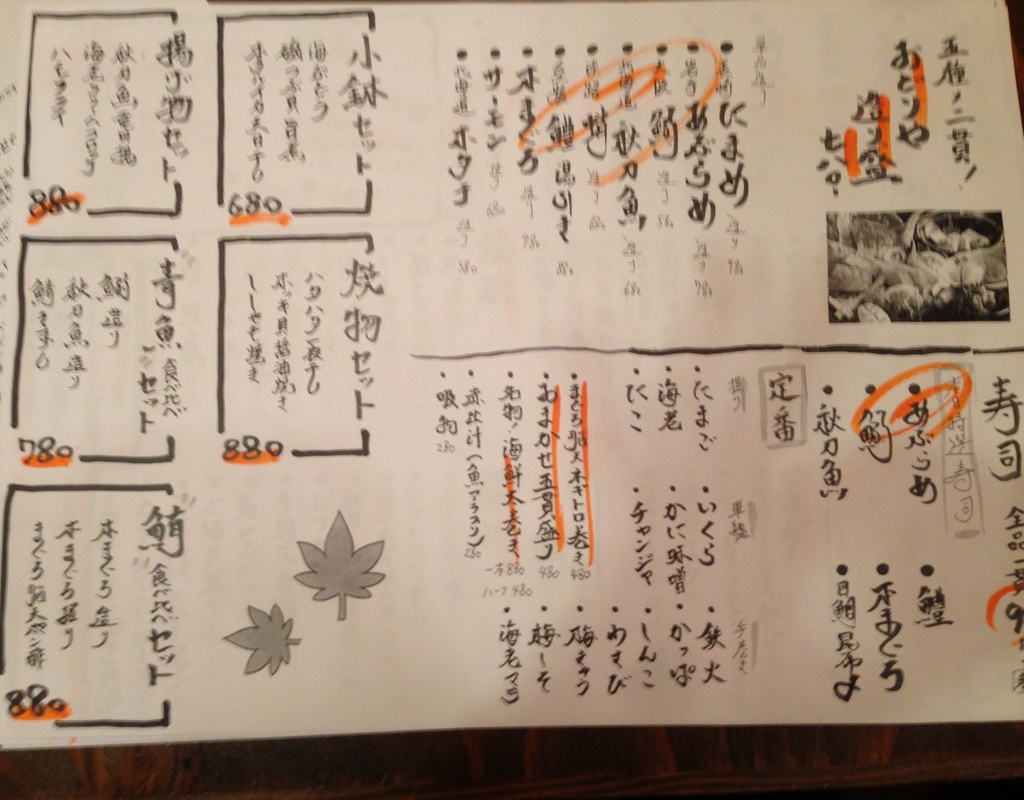 五種!二貫!
おどりや
造り盛
単品造り
にまめ 造り 980
あぶらめ 造り 780
鯛 造り 580
北海道 秋刀魚 造り 680
鱧湯引き 880
本まぐろ 造り 980
サーモン 造り
北海道 ホタテ 造り 580
寿司 全品一貫
本日の特選寿司
・あぶらめ
・鯛
・秋刀魚
・鱧
・本まぐろ
・目鯛昆布〆
定番
握り
・たまご
・海老
・たこ
軍艦
・いくら
・かに味噌
・チャンジャ
手巻き
・鉄火
・かっぱ
・しんこ
・わさび
・梅きゅう
・梅しそ
・海老マヨ
・まぐろ脳天ネギトロ巻き 480
・おまかせ五貫盛り 480
・名物!海鮮大巻き 一本880 ハーフ480
・赤出汁(魚アラ入り) 280
・吸物 280
小鉢セット
海ぶどう
磯つぶ貝旨煮
680
焼物セット
ハタハタ一夜干し
ホッキ貝醤油焼き
ししゃも焼き
880
揚げ物セット
秋刀魚竜田揚
海老クリームコロッケ
880
青魚食べ比べセット
鯛造り
秋刀魚造り
鯖きずし
780
鮪食べ比べセット
本まぐろ造り
本まぐろ握り
まぐろ脳天ポン酢
880